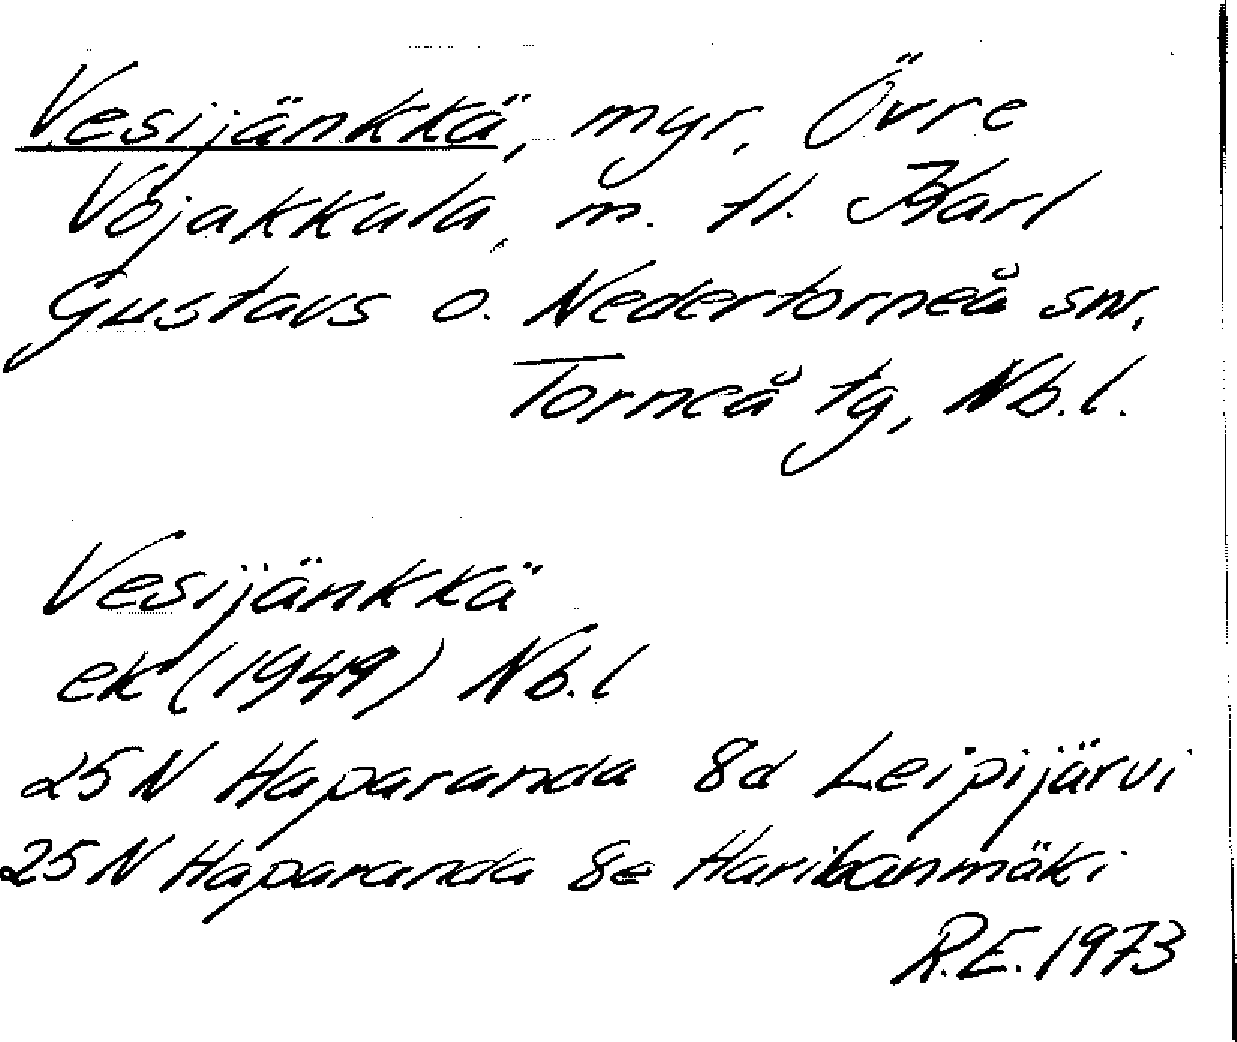 Vesijänkkä, myr, Övre
Vojakkala, m. fl. Karl
Gustavs o. Nedertorneå snr,
Torneå tg, Nb.l.
Vesijänkkä
ek (1949) Nb.l
25N Haparanda 8d Leipijärvi
25N Haparanda 8e Haribanmäki
R.E. 1973